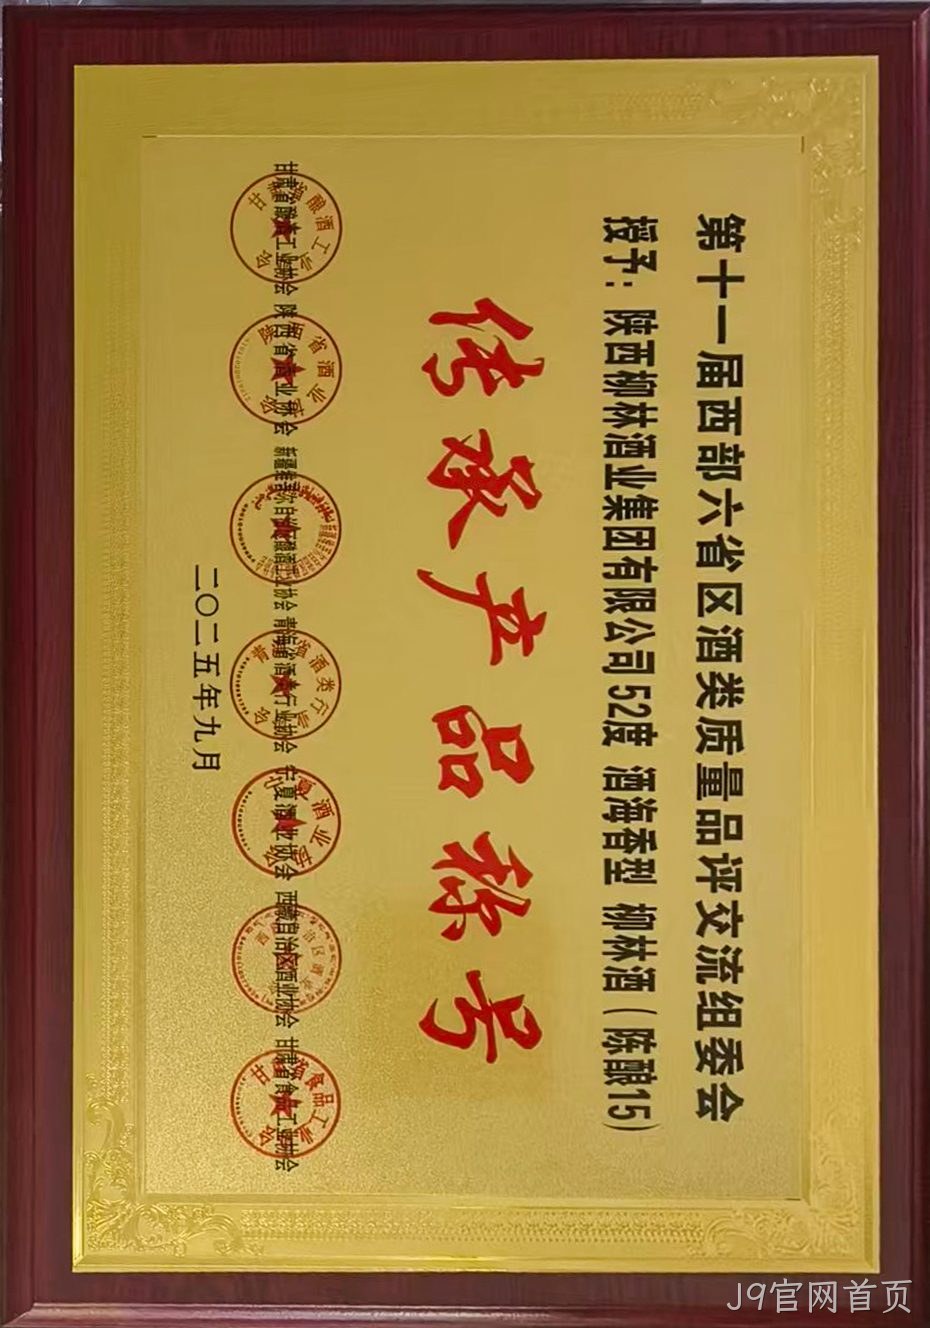 第十一届西部六省区酒类质量品评交流组委会
授予：陕西柳林酒业集团有限公司52度 酒海香型 柳林酒（陈酿15）
传承产品称号
甘肃省酿酒工业协会 陕西省酒业协会 新疆维吾尔自治区酿酒工业协会 青海省酒类行业协会 宁夏酒业协会 西藏自治区酒业协会 甘肃省食品工业协会
二〇二五年九月
J9官网首页